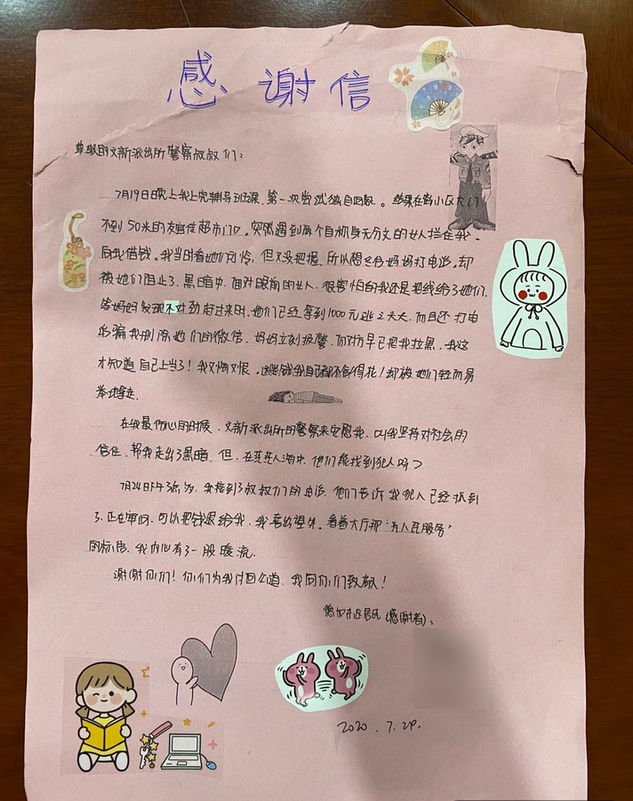 感谢信
尊敬的文新派出所警察叔叔们：
7月19日晚上我上完辅导班课，第一次尝试独自回家。结果在离小区大门
不到50米的友谊佳超市门口，突然遇到两个自称身无分文的女人拦住我，
向我借钱。我当时看她们可怜，但又没把握，所以想之会妈妈打电话，却
被她们阻止了。黑暗中，面对眼前的女人，很害怕的我还是把钱给了她们。
等妈妈发现不对劲赶过来时，她们已经拿到1000元逃之夭夭，而且还打电
话骗我删除她们的微信。妈妈立刻报警，而对方早已把我拉黑，我这
才知道自己上当了！我又悔又恨，这些钱我自己都不舍得花！却被她们轻而易
举地拿走。
在我最伤心的时候，文新派出所的警察来安慰我，叫我坚持对社会的
信任，帮我走出了黑暗。但，在茫茫人海中，他们能找到犯人吗？
7月24日下午3点为，我接到了叔叔们的电话，他们告诉我犯人已经抓到
了，正在审问，可以把钱还给我，我喜出望外。看着大厅那“为人民服务”
的标语，我内心有了一股暖流。
谢谢你们！你们为我讨回公道，我向你们致敬！
居民(感谢者)：
2020.7.29.